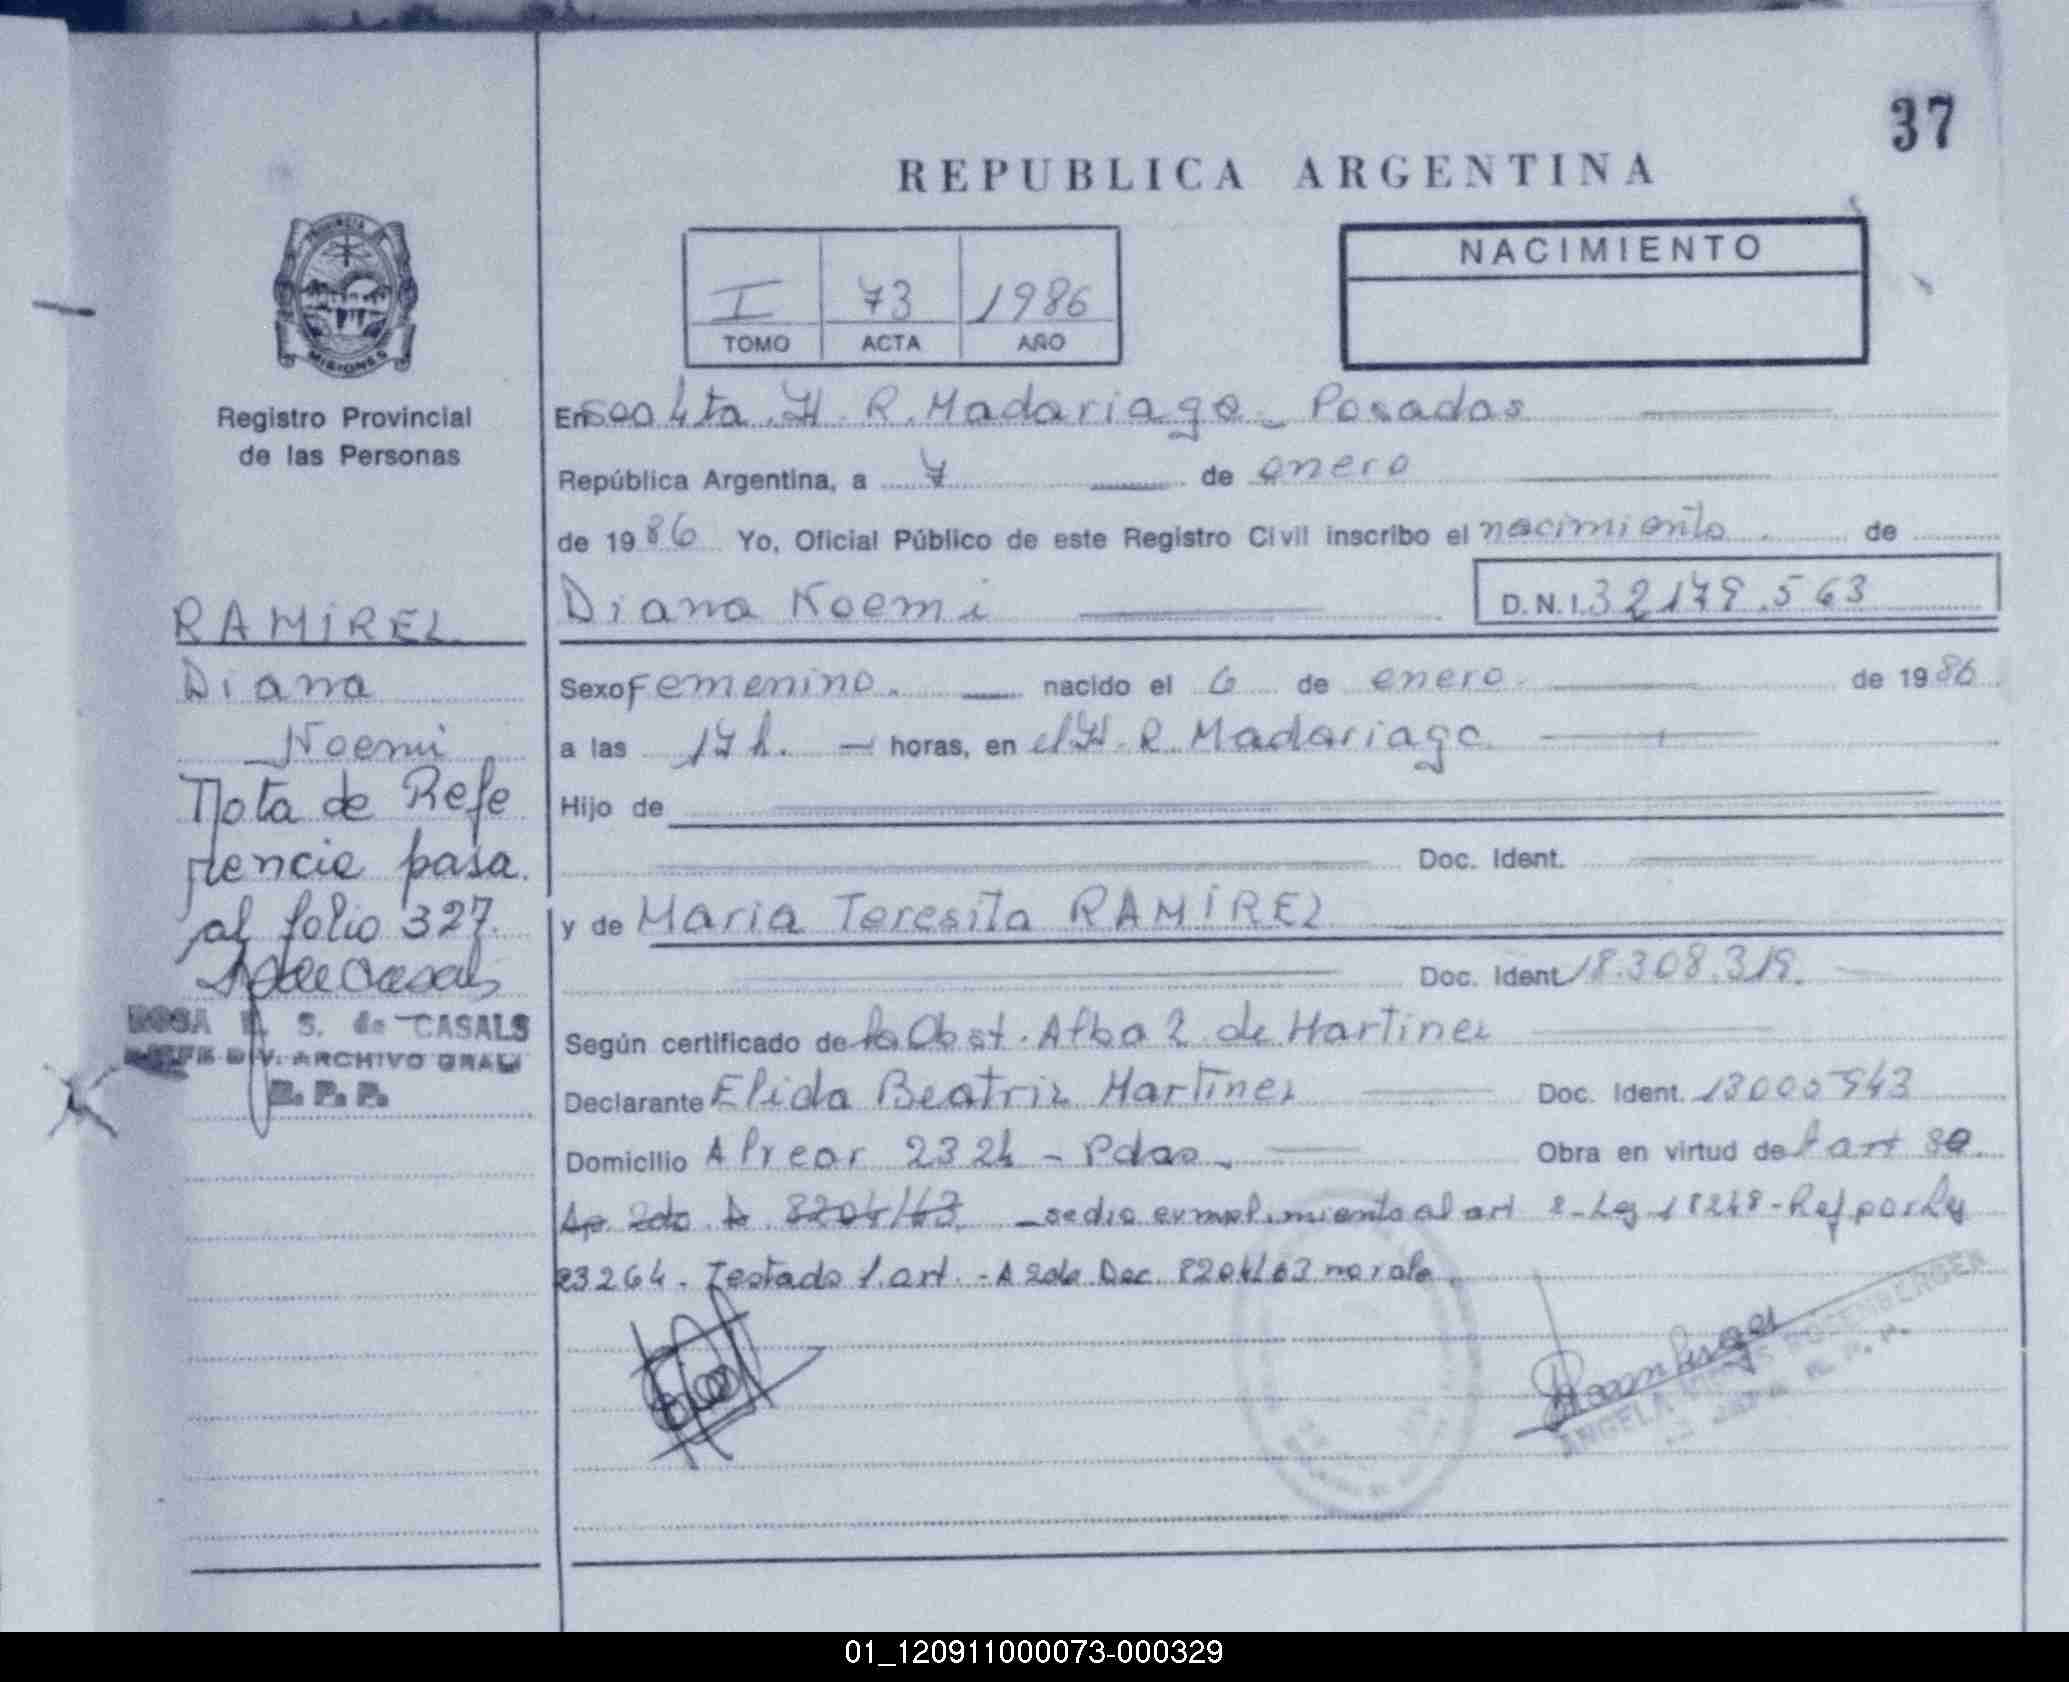 37
REPUBLICA ARGENTINA
PROVINCIA DE
MISIONES
Registro Provincial
de las Personas
I 73 1986
TOMO ACTA AÑO
NACIMIENTO
En secc 4ta. H. R. Madariaga - Posadas
República Argentina, a 7 de enero
de 1986 Yo, Oficial Público de este Registro Civil inscribo el nacimiento de
Diana Noemi D.N.I. 32179.563
RAMIREZ
Diana
Noemi
Nota de Refe
rencia pasa
al folio 327.
ROSA S. de CASALS
JEFE DIV. ARCHIVO GRAL
R. P. P.
Sexo femenino. nacido el 6 de enero de 1986
a las 17 h. horas, en el H. R. Madariaga
Hijo de
Doc. Ident.
y de Maria Teresita RAMIREZ
Doc. Ident. 18.308.319.
Según certificado de la Obst. Alba Z. de Martinez
Declarante Elida Beatriz Martinez Doc. Ident. 13005943
Domicilio Alvear 2324 - Pdas. Obra en virtud de
Ap. 2do D 8204/63 - se dio cumplimiento al art 2 - Ley 18248 - Ref por Ley
23264. Testado 1. art. - A 2do Dec. 8204/63 no vale
ANGELA ROSEMBERGER
01_120911000073-000329